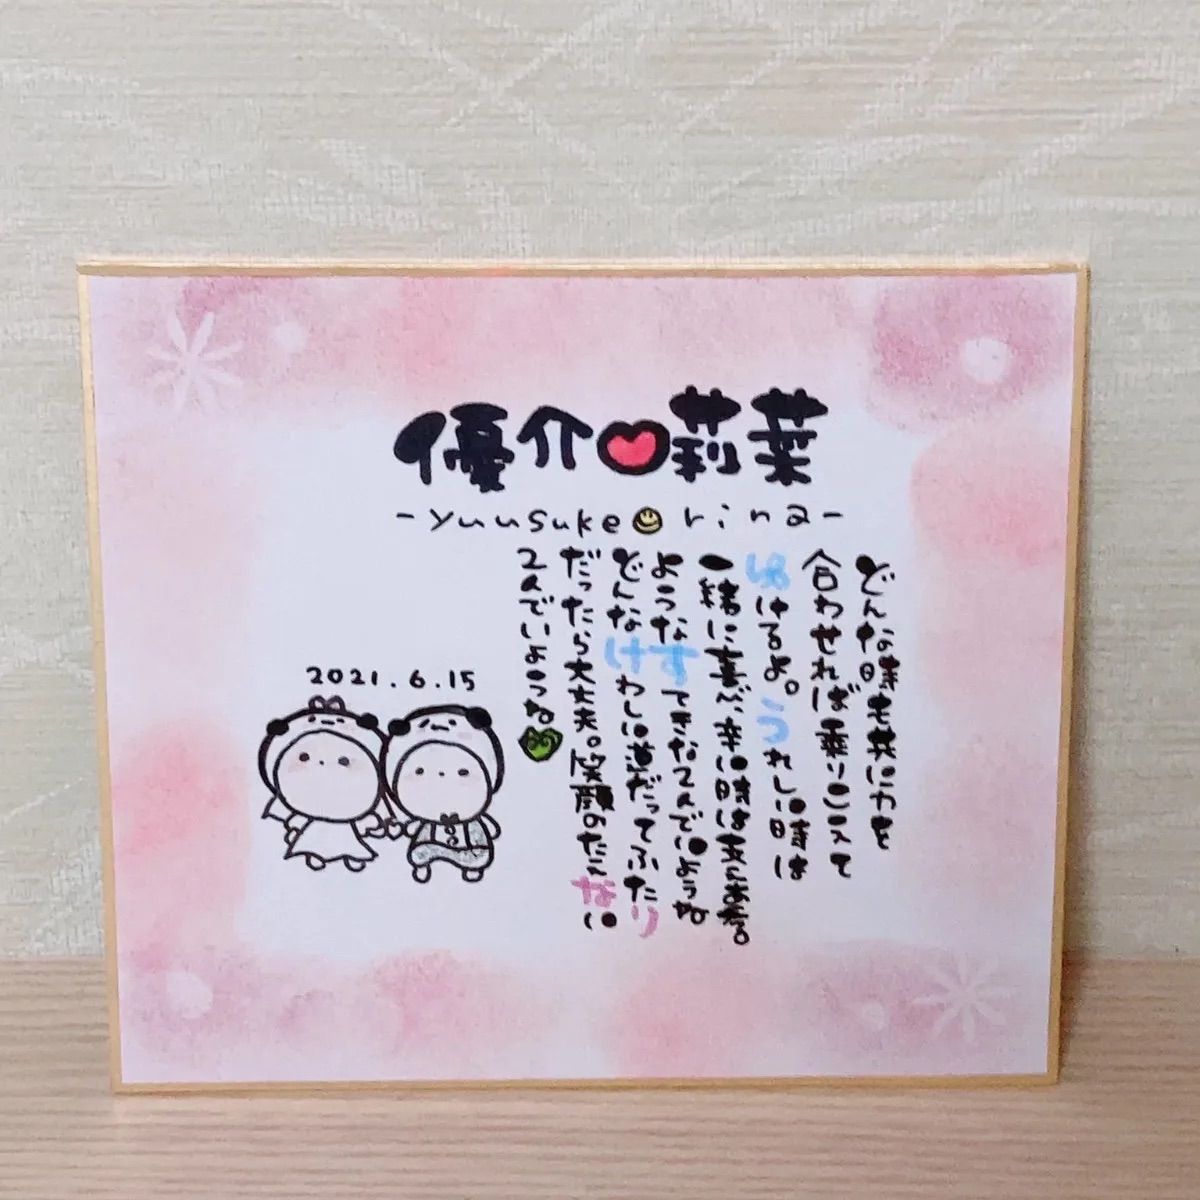 優介莉菜
-yuusuke rina-
どんな時も共に力を
合わせれば乗りこえて
ゆけるよ。うれしい時は
一緒に喜べ、辛い時は支えあえる
ようなすてきな2人でいようね
どんなけわしい道だってふたり
だったら大丈夫。笑顔のたえない
2人でいようね
2021.6.15